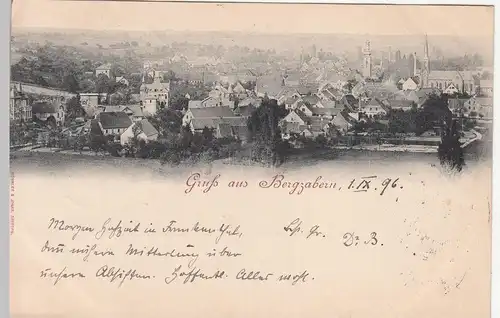 Gruß aus Bergzabern, 1. IX. 96.
Morgen Hofzeit in Frankenthal,
dann nähere Mitteilung über
unsere Absichten. Hoffentl. Alles wohl.
Hzl. Gr.
Dr. B.